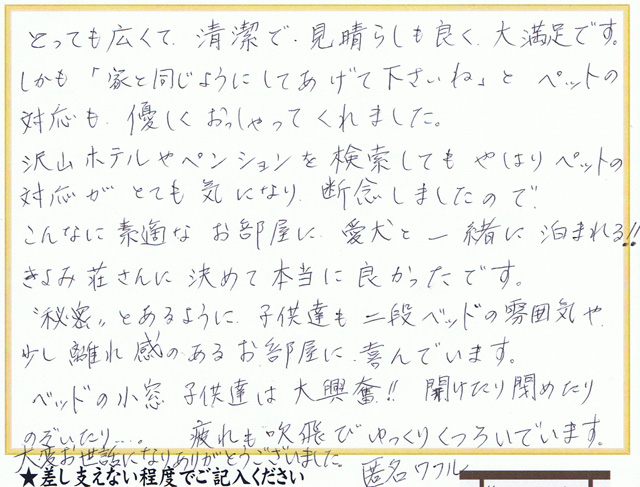 とっても広くて、清潔で、見晴らしも良く、大満足です。
しかも「家と同じようにしてあげて下さいね」と ペットの
対応も、優しくおっしゃってくれました。
沢山ホテルやペンションを検索しても やはりペットの
対応が とても気になり、断念しましたので、
こんなに素適な お部屋に、愛犬と一緒に泊まれる!!
きよみ荘さんに決めて本当に良かったです。
"秘密"とあるように、子供達も二段ベッドの雰囲気や、
少し離れ感のあるお部屋に、喜んでいます。
ベッドの小窓、子供達は大興奮!! 開けたり閉めたり
のぞいたり…。 疲れも吹飛びゆっくりくつろいでいます。
大変お世話になりありがとうございました。
匿名ワフル
★差し支えない程度でご記入ください